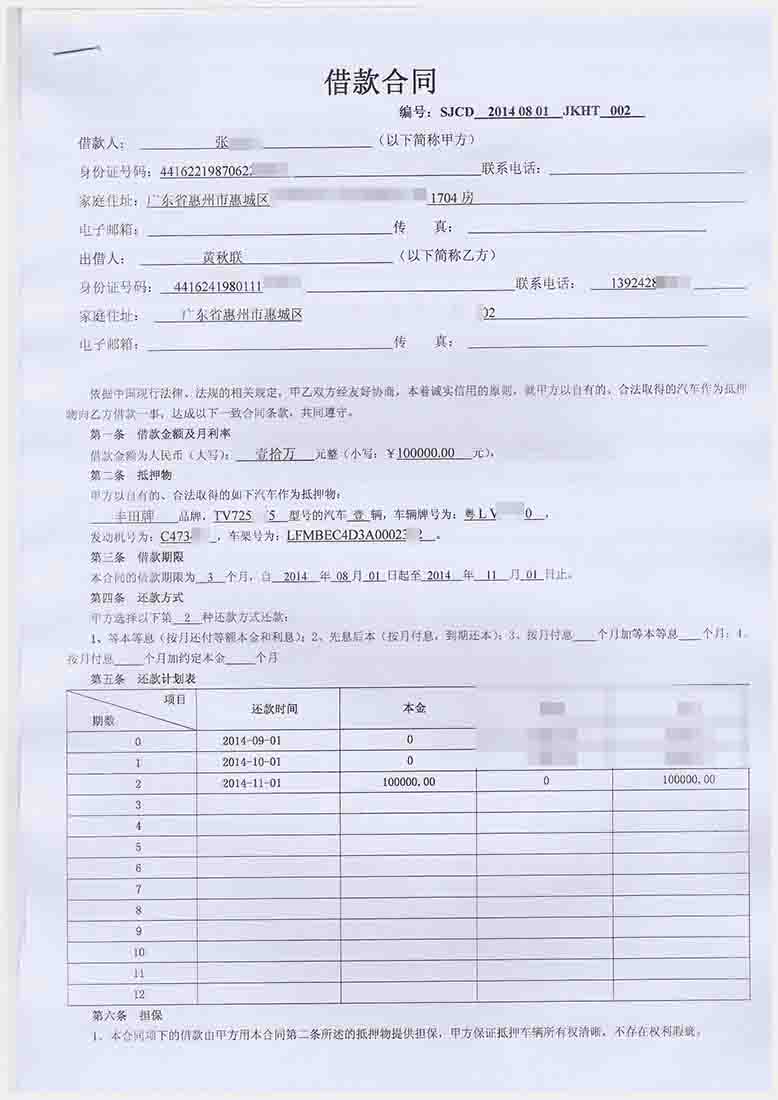 借款合同
编号：SJCD 2014 08 01 JKHT 002
借款人： 张 （以下简称甲方）
身份证号码：4416221987062 联系电话：
家庭住址：广东省惠州市惠城区 1704 房
电子邮箱： 传 真：
出借人： 黄秋联 （以下简称乙方）
身份证号码： 4416241980111 联系电话： 1392428
家庭住址： 广东省惠州市惠城区 02
电子邮箱： 传 真：
依据中国现行法律、法规的相关规定，甲乙双方经友好协商，本着诚实信用的原则，就甲方以自有的、合法取得的汽车作为抵押
物向乙方借款一事，达成以下一致合同条款，共同遵守。
第一条 借款金额及月利率
借款金额为人民币（大写）： 壹拾万 元整（小写：￥100000.00 元），
第二条 抵押物
甲方以自有的、合法取得的如下汽车作为抵押物：
丰田牌 品牌，TV725 5 型号的汽车 壹 辆，车辆牌号为：粤L V 0 ，
发动机号为：C473 ，车架号为：LFMBEC4D3A0002 2 。
第三条 借款期限
本合同的借款期限为 3 个月，自 2014 年 08 月 01 日起至 2014 年 11 月 01 日止。
第四条 还款方式
甲方选择以下第 2 种还款方式还款：
1、等本等息（按月还付等额本金和利息）；2、先息后本（按月付息，到期还本）；3、按月付息____个月加等本等息____个月；4、
按月付息_____个月加约定本金_____个月
第五条 还款计划表
项目 期数 还款时间 本金
0 2014-09-01 0
1 2014-10-01 0
2 2014-11-01 100000.00 0 100000.00
3
4
5
6
7
8
9
10
11
12
第六条 担保
1、本合同项下的借款由甲方用本合同第二条所述的抵押物提供担保，甲方保证抵押车辆所有权清晰，不存在权利瑕疵。